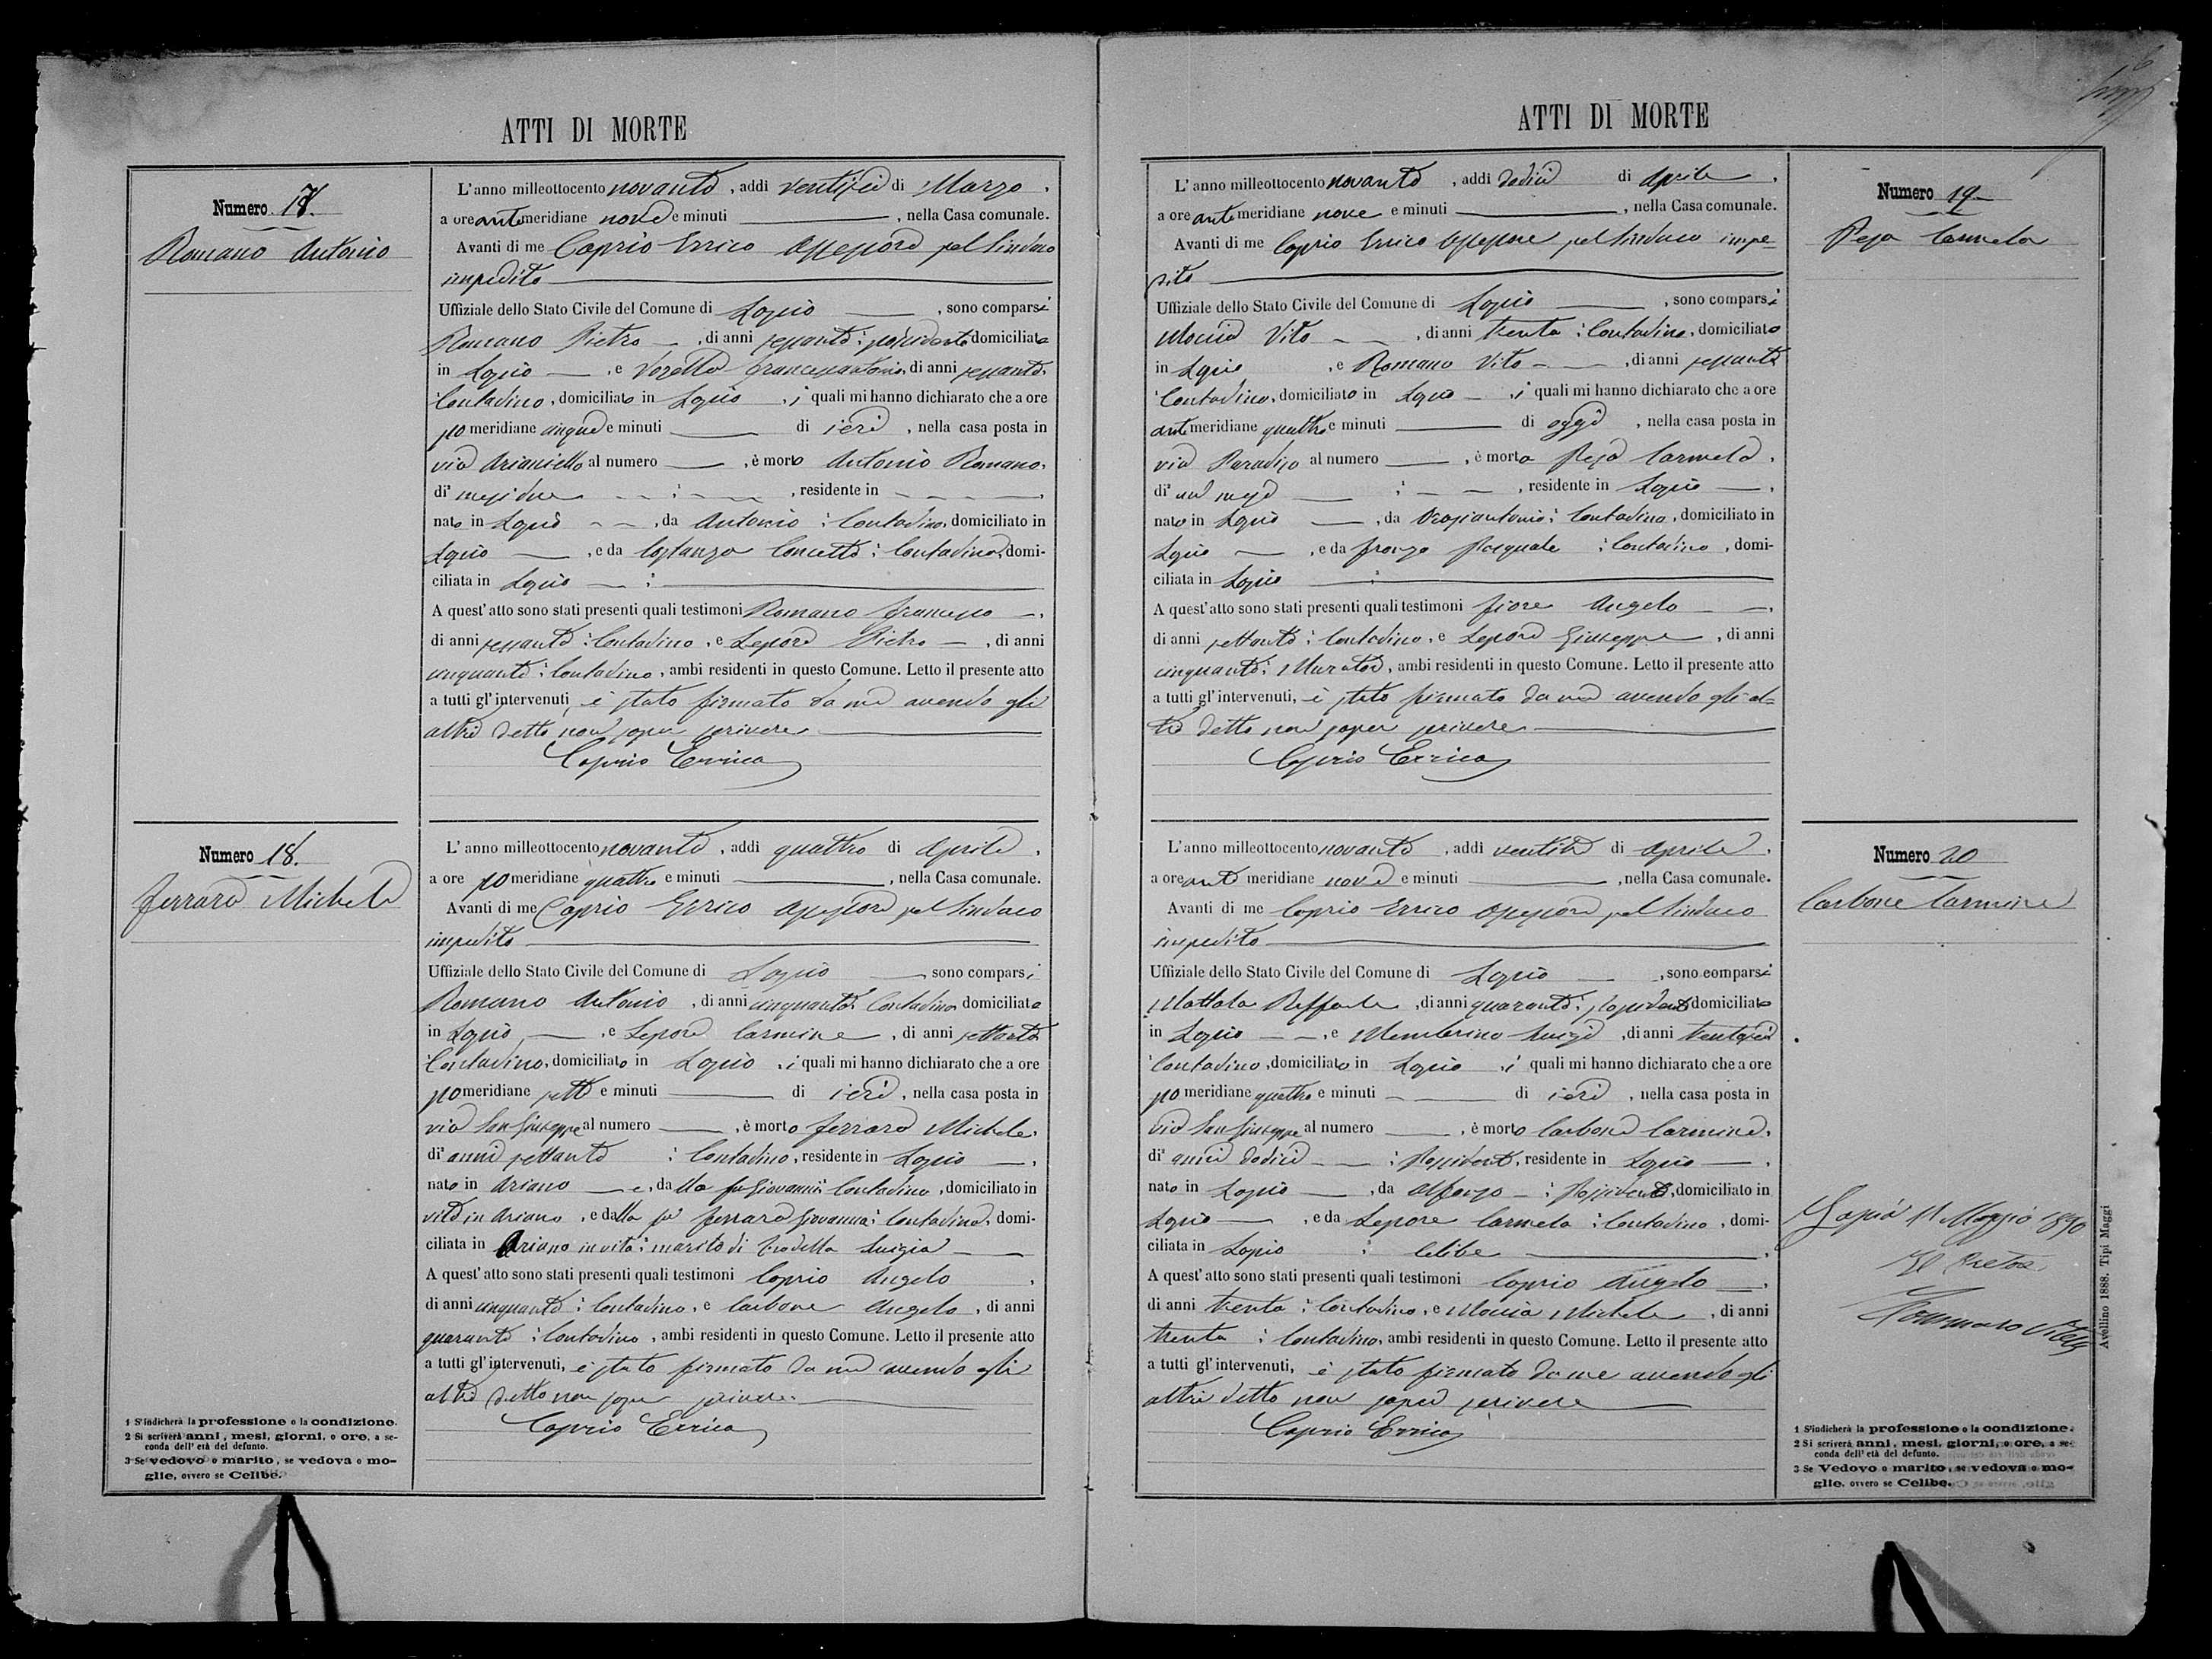 ATTI DI MORTE
Numero 17.
Romano Antonio
L'anno milleottocento novanta, addì ventisei di Marzo,
a ore antemeridiane nove e minuti, nella Casa comunale.
Avanti di me Caprio Errico Assessore pel Sindaco
impedito
Uffiziale dello Stato Civile del Comune di Lapio, sono comparsi
Romano Pietro, di anni sessanta: possidente domiciliato
in Lapio, e Francescantonio, di anni sessanta,
Contadino, domiciliato in Lapio, i quali mi hanno dichiarato che a ore
pomeridiane cinque e minuti di ieri, nella casa posta in
via Arianiello al numero, è morto Antonio Romano,
di mesi due, residente in
nato in Lapio, da Antonio: Contadino, domiciliato in
Lapio, e da Costanzo Concetta: Contadina, domi-
ciliata in Lapio
A quest'atto sono stati presenti quali testimoni Romano Francesco,
di anni sessanta: Contadino, e Lepore Pietro, di anni
cinquanta: Contadino, ambi residenti in questo Comune. Letto il presente atto
a tutti gl'intervenuti, è stato firmato da me avendo gli
altri detto non saper scrivere
Caprio Errico
Numero 18.
Ferrara Michele
L'anno milleottocento novanta, addì quattro di Aprile,
a ore pomeridiane quattro e minuti, nella Casa comunale.
Avanti di me Caprio Errico Assessore pel Sindaco
impedito
Uffiziale dello Stato Civile del Comune di Lapio sono comparsi
Romano Antonio, di anni cinquanta: Contadino domiciliato
in Lapio, e Lepore Carmine, di anni settanta
Contadino, domiciliato in Lapio, i quali mi hanno dichiarato che a ore
pomeridiane sette e minuti di ieri, nella casa posta in
via San Giuseppe al numero, è morto Ferrara Michele,
di anni settanta: Contadino, residente in Lapio,
nato in Ariano, dallo fu Giovanni: Contadino, domiciliato in
vita in Ariano, e dalla fu Ferrara Giovanna: Contadina, domi-
ciliata in Ariano in vita: marito di Luigia
A quest'atto sono stati presenti quali testimoni Caprio Angelo,
di anni cinquanta: Contadino, e Carbone Angelo, di anni
quaranta: Contadino, ambi residenti in questo Comune. Letto il presente atto
a tutti gl'intervenuti, è stato firmato da me avendo gli
altri detto non saper scrivere.
Caprio Errico
1 S'indicherà la professione o la condizione.
2 Si scriverà anni, mesi, giorni, o ore, a se-
conda dell'età del defunto.
3 Se vedovo o marito, se vedova o mo-
glie, ovvero se Celibe.
ATTI DI MORTE
Numero 19
Pesa Carmela
L'anno milleottocento novanta, addì dodici di Aprile,
a ore antemeridiane nove e minuti, nella Casa comunale.
Avanti di me Caprio Errico Assessore pel Sindaco impe-
dito
Uffiziale dello Stato Civile del Comune di Lapio, sono comparsi
Moccia Vito, di anni trenta: Contadino, domiciliato
in Lapio, e Romano Vito, di anni sessanta
Contadino, domiciliato in Lapio, i quali mi hanno dichiarato che a ore
antemeridiane quattro e minuti di oggi, nella casa posta in
via Paradiso al numero, è morta Pesa Carmela,
di un mese, residente in Lapio,
nato in Lapio, da Contadino, domiciliato in
Lapio, e da Pasquale: Contadina, domi-
ciliata in Lapio
A quest'atto sono stati presenti quali testimoni Fiore Angelo,
di anni settanta: Contadino, e Lepore Giuseppe, di anni
cinquanta: Muratore, ambi residenti in questo Comune. Letto il presente atto
a tutti gl'intervenuti, è stato firmato da me avendo gli al-
tri detto non saper scrivere
Caprio Errico
Numero 20
Carbone Carmine
L'anno milleottocento novanta, addì ventitre di Aprile,
a ore antemeridiane nove e minuti, nella Casa comunale.
Avanti di me Caprio Errico Assessore pel Sindaco
impedito
Uffiziale dello Stato Civile del Comune di Lapio, sono comparsi
Raffaele, di anni quaranta: possidente domiciliato
in Lapio, e Membrino Luigi, di anni trentasei
Contadino, domiciliato in Lapio, i quali mi hanno dichiarato che a ore
pomeridiane quattro e minuti di ieri, nella casa posta in
via San Giuseppe al numero, è morto Carbone Carmine,
di anni dodici: Possidente, residente in Lapio,
nato in Lapio, da Alfonso: Possidente, domiciliato in
Lapio, e da Lepore Carmela: Contadina, domi-
ciliata in Lapio: Celibe,
A quest'atto sono stati presenti quali testimoni Caprio Angelo,
di anni trenta: Contadino, e Moccia Michele, di anni
trenta: Contadino, ambi residenti in questo Comune. Letto il presente atto
a tutti gl'intervenuti, è stato firmato da me avendo gli
altri detto non saper scrivere
Caprio Errico
Lapio 11 Maggio 1890
Il Pretore
Tommaso
Avellino 1888. Tipi Maggi
1 S'indicherà la professione o la condizione.
2 Si scriverà anni, mesi, giorni, o ore, a se-
conda dell'età del defunto.
3 Se Vedovo o marito, se vedova o mo-
glie, ovvero se Celibe.